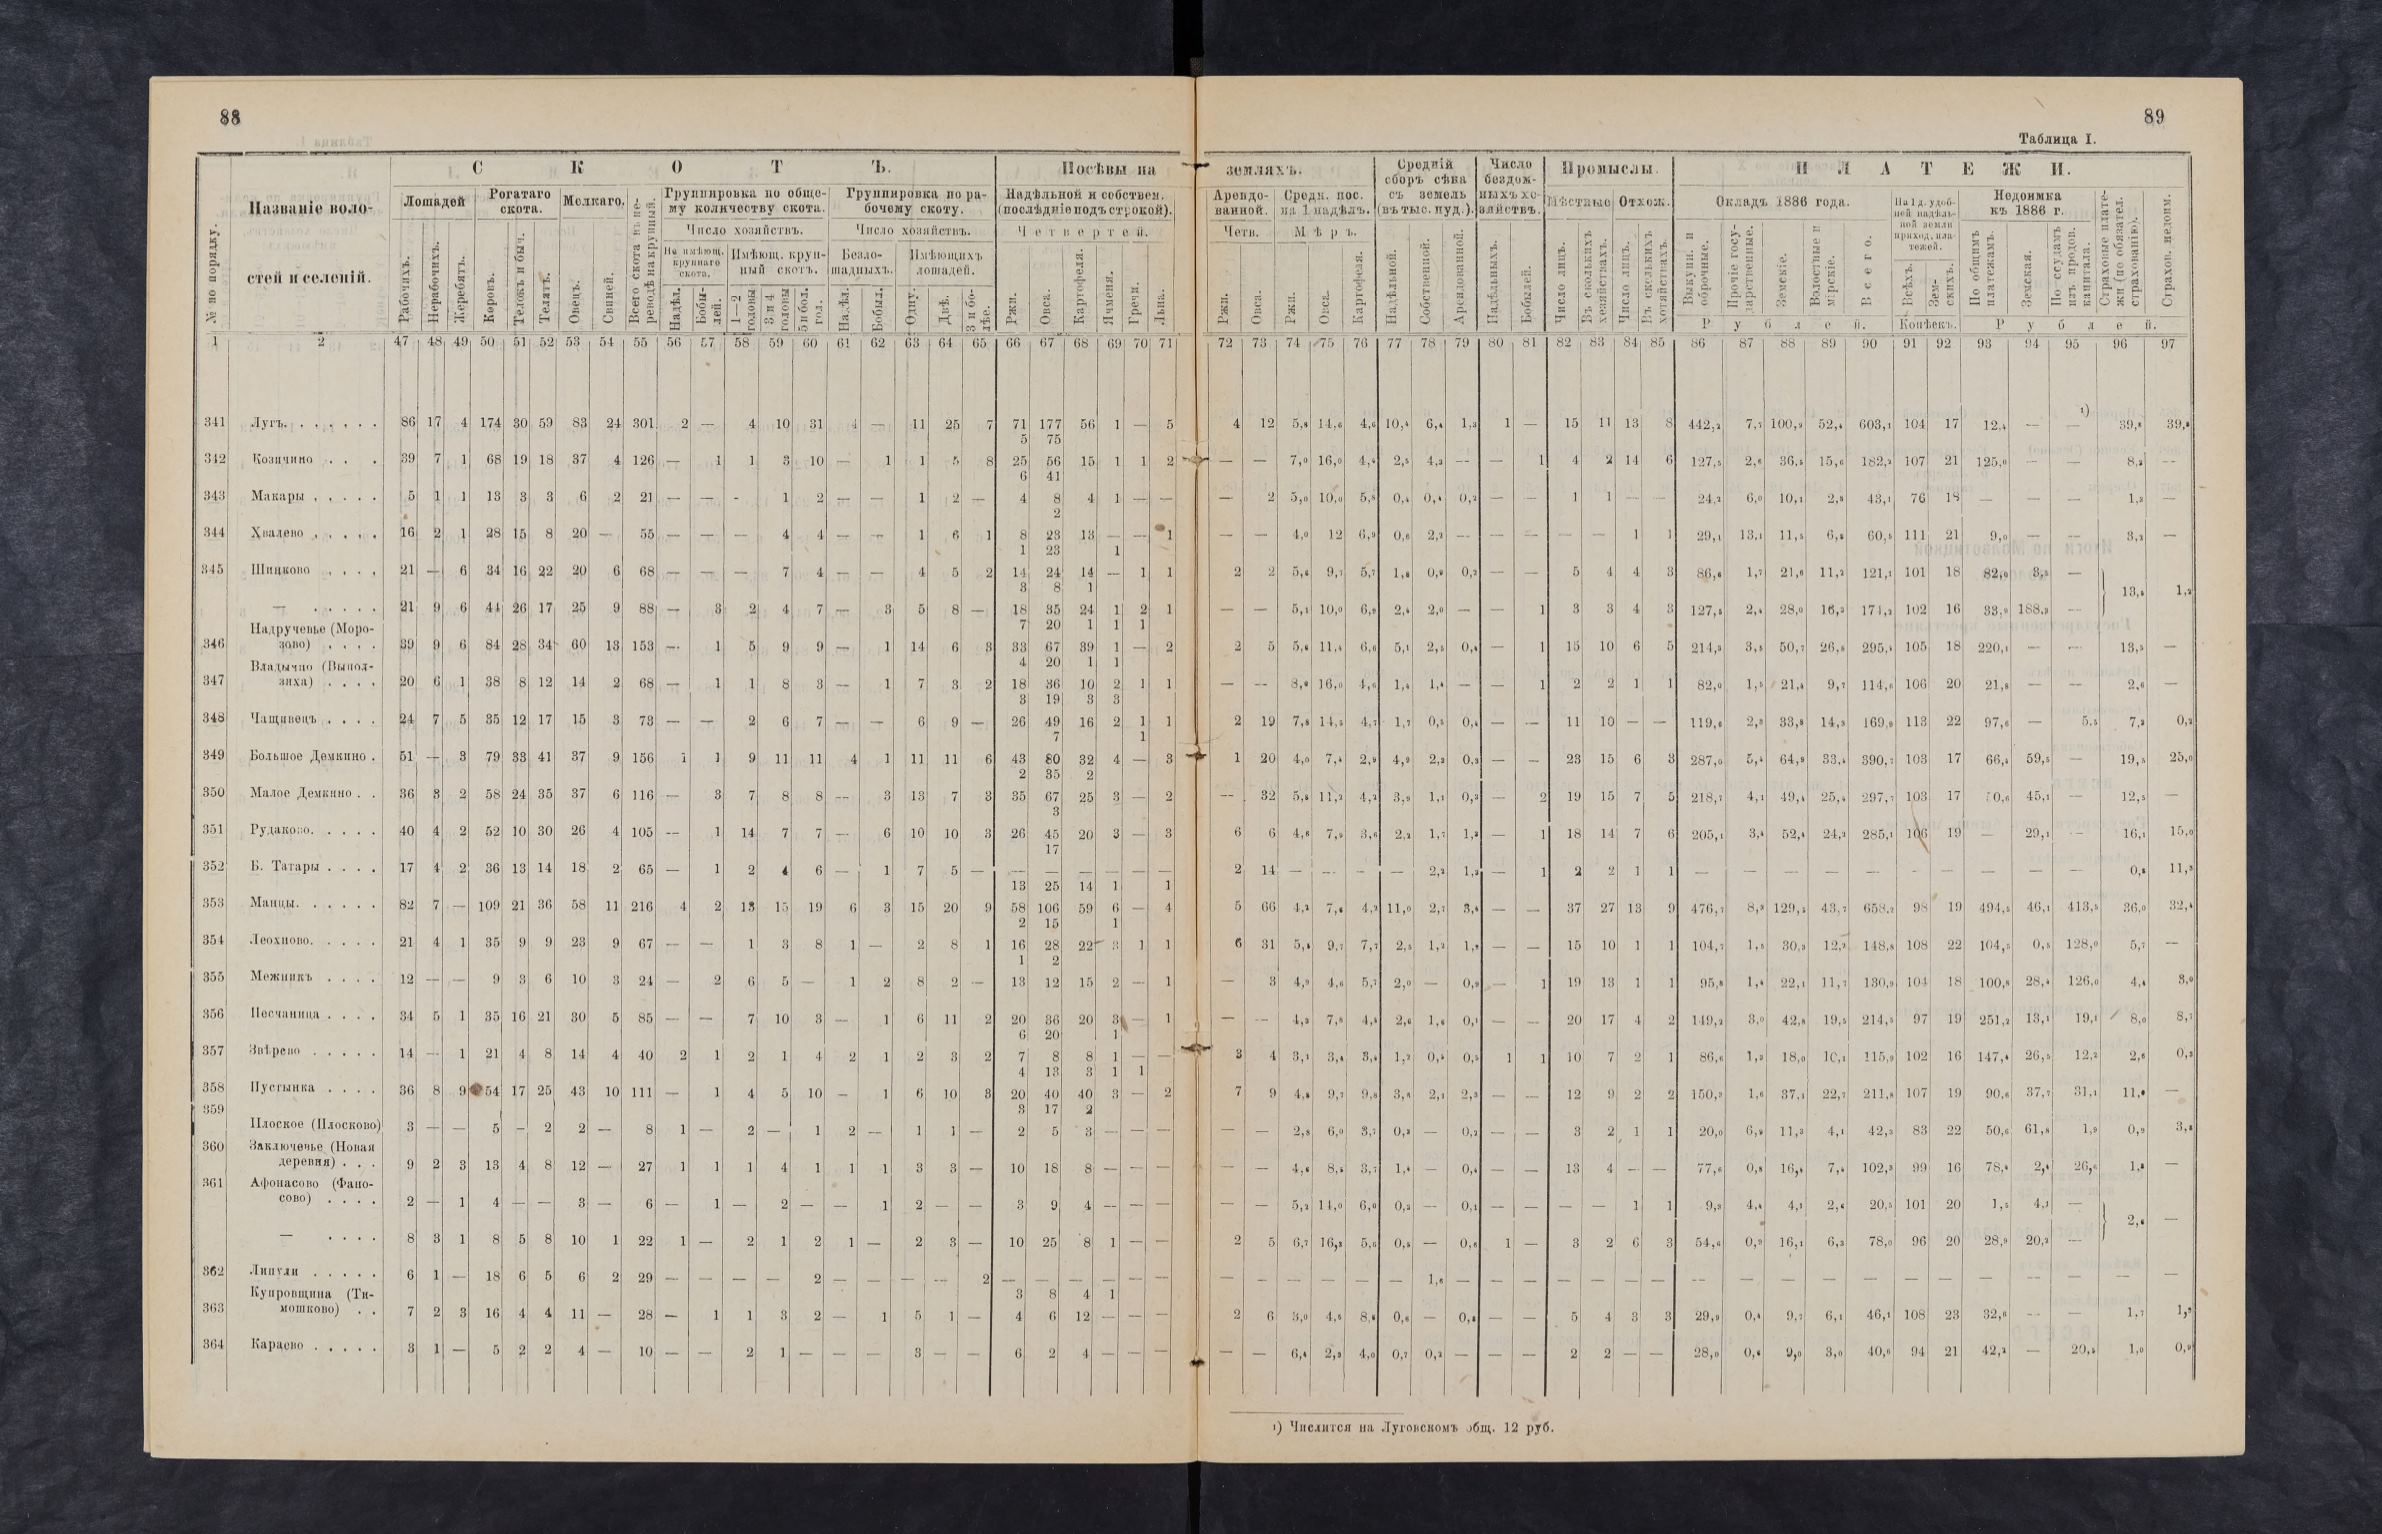 88
89
Таблица I.
С К О Т Ъ.
Посѣвы на
земляхъ.
Средній сборъ сѣна съ земель (въ тыс. пуд.).
Число бездомныхъ хозяйствъ.
Промыслы.
П Л А Т Е Ж И.
№ по порядку.
Названіе волостей и селеній.
Лошадей
Рогатаго скота.
Мелкаго.
Всего скота въ переводѣ на крупный.
Группировка по общему количеству скота.
Группировка по рабочему скоту.
Надѣльной и собствен. (послѣдніе подъ строкой).
Арендованной.
Средн. пос. на 1 надѣлъ.
Мѣстные
Отхож.
Окладъ 1886 года.
На 1 д. удобной надѣльной земли приход. платежей.
Недоимка къ 1886 г.
Страховые платежи (по обязател. страхованію).
Страхов. недоим.
Число хозяйствъ.
Число хозяйствъ.
Четвертей.
Четв.
Мѣръ.
Не имѣющ. крупнаго скота.
Имѣющ. крупный скотъ.
Безлошадныхъ.
Имѣющихъ лошадей.
Рабочихъ. Нерабочихъ. Жеребятъ. Коровъ. Телокъ и быч. Телятъ. Овецъ. Свиней.
Надѣл. Бобылей. 1—2 головы 3 и 4 головы 5 и бол. гол. Надѣл. Бобыл. Одну. Двѣ. 3 и болѣе.
Ржи. Овса. Картофеля. Ячменя. Гречи. Льна.
Ржи. Овса. Ржи. Овса. Картофеля. Надѣльной. Собственной. Арендованной. Надѣльныхъ. Бобылей.
Число лицъ. Въ сколькихъ хозяйствахъ. Число лицъ. Въ сколькихъ хозяйствахъ.
Выкупн. и оброчные. Прочіе государственные. Земскіе. Волостные и мірскіе. Всего. Всѣхъ. Земскихъ. По общимъ платежамъ. Земская. По ссудамъ изъ продов. капитала.
Рублей. Копѣекъ. Рублей.
1 2 47 48 49 50 51 52 53 54 55 56 57 58 59 60 61 62 63 64 65 66 67 68 69 70 71 72 73 74 75 76 77 78 79 80 81 82 83 84 85 86 87 88 89 90 91 92 93 94 95 96 97
¹)
341 Лугъ. . . . . . . 86 17 4 174 30 59 83 24 301 2 — 4 10 31 4 — 11 25 7 71 177 56 1 — 5 4 12 5,8 14,6 4,6 10,4 6,4 1,3 1 — 15 11 13 8 442,2 7,7 100,9 52,4 603,1 104 17 12,4 — — 39,8 39,8
5 75
342 Козичино . . . 39 7 1 68 19 18 37 4 126 — 1 1 3 10 — 1 1 5 8 25 56 15 1 1 2 — — 7,0 16,0 4,4 2,5 4,3 — — 1 4 2 14 6 127,5 2,6 36,5 15,6 182,2 107 21 125,0 — — 8,2 —
6 41
343 Макары . . . . . 5 1 1 13 3 3 6 2 21 — — - 1 2 — — 1 2 — 4 8 4 1 — — — 2 5,0 10,0 5,8 0,4 0,4 0,2 — — 1 1 — — 24,2 6,0 10,1 2,8 43,1 76 18 — — — 1,3 —
2
344 Хвалево . . . . . 16 2 1 28 15 8 20 — 55 — — — 4 4 — — 1 6 1 8 23 13 — — 1 — — 4,0 12 6,9 0,6 2,2 — — — — — 1 1 29,1 13,1 11,5 6,8 60,5 111 21 9,0 — — 3,3 —
1 23 1
345 Шицково . . . . 21 — 6 34 16 22 20 6 68 — — — 7 4 — — 4 5 2 14 24 14 — 1 1 2 2 5,6 9,7 5,7 1,8 0,9 0,2 — — 5 4 4 3 86,6 1,7 21,6 11,2 121,1 101 18 82,0 3,5 —
3 8 1
13,4 1,2
— . . . . . 21 9 6 44 26 17 25 9 88 — 3 2 4 7 — 3 5 8 — 18 35 24 1 2 1 — — 5,1 10,0 6,9 2,4 2,0 — — 1 3 3 4 3 127,5 2,4 28,0 16,3 174,2 102 16 33,9 188,9 —
7 20 1 1 1
Надручевье (Моро-
346 зово) . . . . 39 9 6 84 28 34 60 13 153 — 1 5 9 9 — 1 14 6 3 33 67 39 1 — 2 2 5 5,6 11,4 6,6 5,1 2,5 0,4 — 1 15 10 6 5 214,3 3,5 50,7 26,8 295,4 105 18 220,1 — — 13,5 —
4 20 1 1
Владычно (Выпол-
347 зиха) . . . . 20 6 1 38 8 12 14 2 68 — 1 1 8 3 — 1 7 3 2 18 36 10 2 1 1 — — 8,9 16,0 4,6 1,4 1,4 — — 1 2 2 1 1 82,0 1,5 21,4 9,7 114,6 106 20 21,8 — — 2,6 —
3 19 3 3
348 Чащивецъ . . . . 24 7 5 35 12 17 15 3 73 — — 2 6 7 — — 6 9 — 26 49 16 2 1 1 2 19 7,8 14,5 4,7 1,7 0,5 0,4 — — 11 10 — — 119,6 2,3 33,8 14,3 169,9 113 22 97,6 — 5,5 7,3 0,2
7 1
349 Большое Демкино . 51 — 3 79 33 41 37 9 156 1 1 9 11 11 4 1 11 11 6 43 80 32 4 — 3 1 20 4,0 7,4 2,9 4,9 2,2 0,3 — — 23 15 6 3 287,0 5,4 64,9 33,4 390,7 103 17 66,4 59,5 — 19,5 25,0
2 35 2
350 Малое Демкино . . 36 8 2 58 24 35 37 6 116 — 3 7 8 8 — 3 13 7 3 35 67 25 3 — 2 — 32 5,8 11,2 4,2 3,9 1,1 0,3 — 2 19 15 7 5 218,7 4,1 49,4 25,4 297,7 103 17 50,6 45,1 — 12,5 —
3
351 Рудаково. . . . . 40 4 2 52 10 30 26 4 105 — 1 14 7 7 — 6 10 10 3 26 45 20 3 — 3 6 6 4,6 7,9 3,6 2,2 1,7 1,2 — 1 18 14 7 6 205,1 3,4 52,4 24,2 285,1 106 19 — 29,1 — 16,1 15,0
17
352 Б. Татары . . . . 17 4 2 36 13 14 18 2 65 — 1 2 4 6 — 1 7 5 — — — — — — — 2 14 — — — — 2,2 1,3 — 1 2 2 1 1 — — — — — — — — — — 0,8 11,3
13 25 14 1 1
353 Манцы. . . . . . 82 7 — 109 21 36 58 11 216 4 2 13 15 19 6 3 15 20 9 58 106 59 6 — 4 5 66 4,2 7,6 4,2 11,0 2,7 3,4 — — 37 27 13 9 476,7 8,3 129,5 43,7 658,2 98 19 494,5 46,1 413,5 36,0 32,4
2 15 1
354 Леохново. . . . . 21 4 1 35 9 9 23 9 67 — — 1 3 8 1 — 2 8 1 16 28 22 3 1 1 6 31 5,8 9,7 7,7 2,5 1,2 1,8 — — 15 10 1 1 104,7 1,5 30,3 12,3 148,8 108 22 104,5 0,5 128,0 5,7 —
1 2
355 Межникъ . . . . 12 — — 9 3 6 10 3 24 — 2 6 5 — 1 2 8 2 — 13 12 15 2 — 1 — 3 4,9 4,6 5,7 2,0 — 0,9 — 1 19 13 1 1 95,8 1,4 22,1 11,7 130,9 104 18 100,8 28,4 126,0 4,4 3,0
356 Песчаница . . . . 34 5 1 35 16 21 30 5 85 — — 7 10 3 — 1 6 11 2 20 36 20 3 — 1 — — 4,3 7,8 4,8 2,6 1,6 0,1 — — 20 17 4 2 149,2 3,0 42,8 19,5 214,5 97 19 251,2 13,1 19,1 8,0 8,7
6 20 1
357 Звѣрево . . . . . 14 — 1 21 4 8 14 4 40 2 1 2 1 4 2 1 2 3 2 7 8 8 1 — — 3 4 3,1 3,4 3,4 1,2 0,4 0,5 1 1 10 7 2 1 86,6 1,3 18,0 10,1 115,9 102 16 147,4 26,5 12,2 2,6 0,3
4 13 3 1 1
358 Пустынка . . . . 36 8 9 54 17 25 43 10 111 — 1 4 5 10 - 1 6 10 3 20 40 40 3 — 2 7 9 4,8 9,7 9,8 3,4 2,1 2,3 — — 12 9 2 2 150,3 1,6 37,1 22,7 211,8 107 19 90,6 37,7 31,1 11,0 —
3 17 2
359 Плоское (Плосково) 3 — — 5 – 2 2 — 8 1 — 2 — 1 2 — 1 1 — 2 5 3 — — — — — 2,8 6,0 3,7 0,3 — 0,2 — — 3 2 1 1 20,0 6,9 11,3 4,1 42,3 83 22 50,6 61,8 1,9 0,9 3,8
360 Заключевье (Новая
деревня) . . . 9 2 3 13 4 8 12 — 27 1 1 1 4 1 1 1 3 3 — 10 18 8 — — — — — 4,6 8,5 3,7 1,4 — 0,4 — — 13 4 — — 77,6 0,8 16,4 7,4 102,3 99 16 78,4 2,4 26,6 1,8 —
361 Афонасово (Фано-
сово) . . . . 2 — 1 4 — — 3 — 6 — 1 — 2 — — 1 2 — — 3 9 4 — — — — — 5,2 14,0 6,0 0,3 — 0,1 — — — — 1 1 9,3 4,4 4,1 2,6 20,5 101 20 1,5 4,1 —
2,6 —
— . . . . 8 3 1 8 5 8 10 1 22 1 — 2 1 2 1 — 2 3 — 10 25 8 1 — — 2 5 6,7 16,3 5,6 0,5 — 0,6 1 — 3 2 6 3 54,6 0,9 16,1 6,3 78,0 96 20 28,9 20,2 —
362 Липули . . . . . 6 1 — 18 6 5 6 2 29 — — — — 2 — — — — 2 — — — — — — — — — — — — 1,6 — — — — — — — — — — — — — — — — — — —
3 8 4 1
Купровщина (Ти-
363 мошково) . . 7 2 3 16 4 4 11 — 28 — 1 1 3 2 — 1 5 1 — 4 6 12 — — — 2 6 3,0 4,5 8,8 0,6 — 0,8 — — 5 4 3 3 29,9 0,4 9,7 6,1 46,1 108 23 32,6 — — 1,7 1,2
364 Караево . . . . . 3 1 — 5 2 2 4 — 10 — — 2 1 — — — 3 — — 6 2 4 — — — — — 6,4 2,3 4,0 0,7 0,2 — — — 2 2 — — 28,0 0,6 9,0 3,0 40,6 94 21 42,2 — 20,5 1,0 0,9
¹) Числится на Луговскомъ общ. 12 руб.